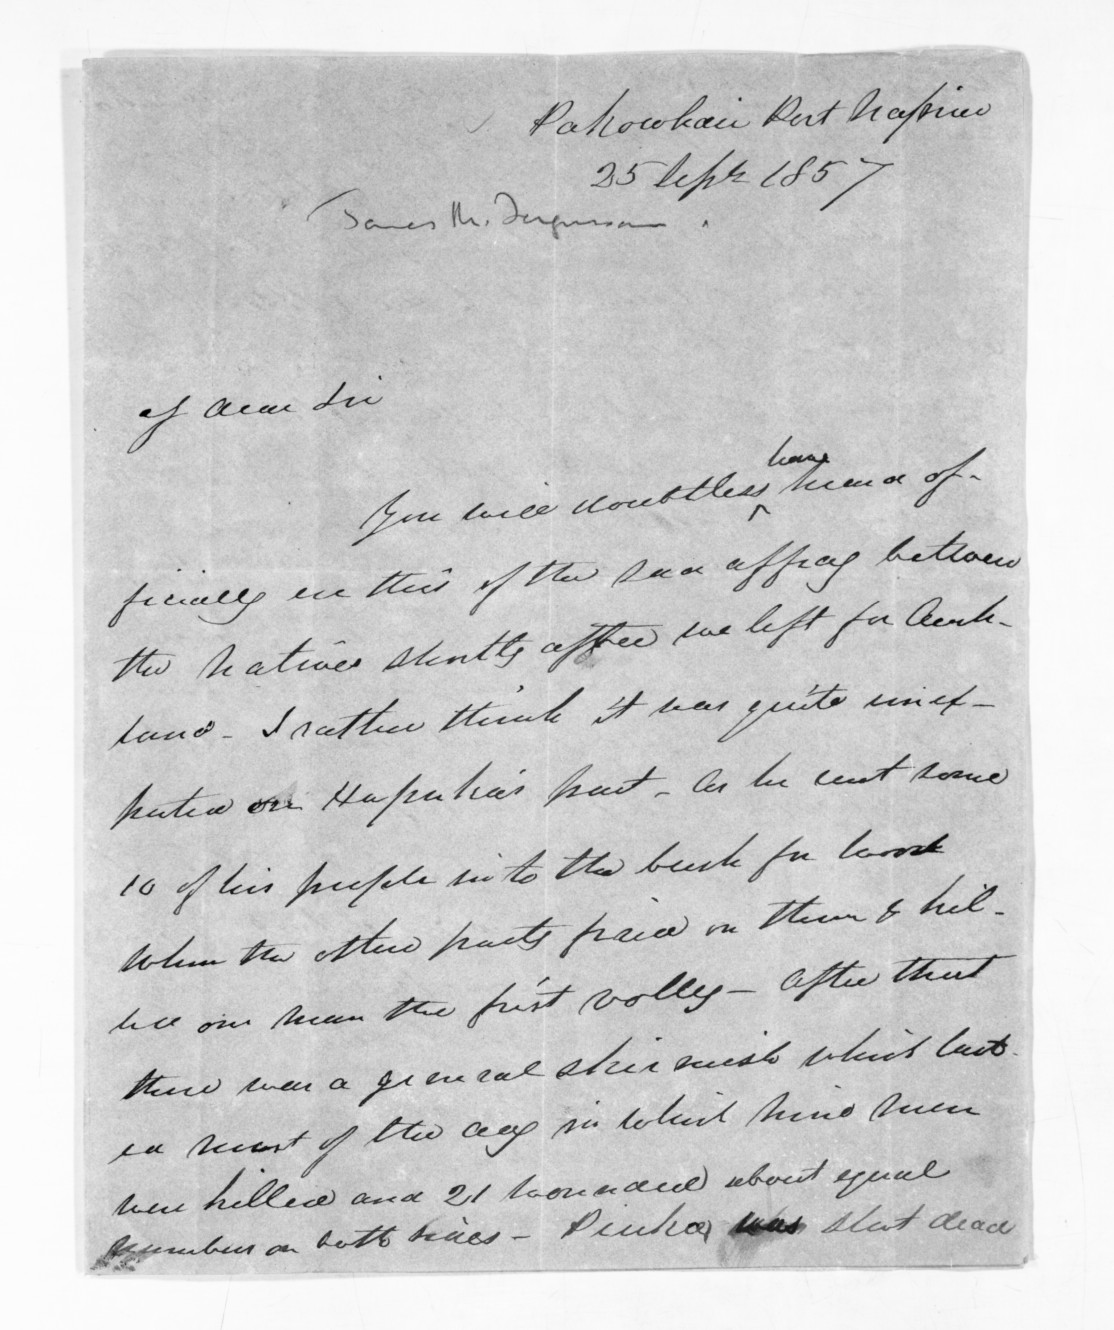 Pakowhai Port Napier
25 Sept 1857
James M. Fergusson.
My dear Sir
You will doubtless have heard of-
ficially ere this of the sad affray between
the Natives shortly after we left for Auck-
land - I rather think it was quite unex-
pected on Hapuka's part - as he sent some
10 of his people into the bush for wood
when the other party fired on them & kil-
led one man the first volley - After that
there was a general skirmish which last-
ed most of the day in which nine men
were killed and 21 wounded about equal
numbers on both sides - Puhara was shot dead